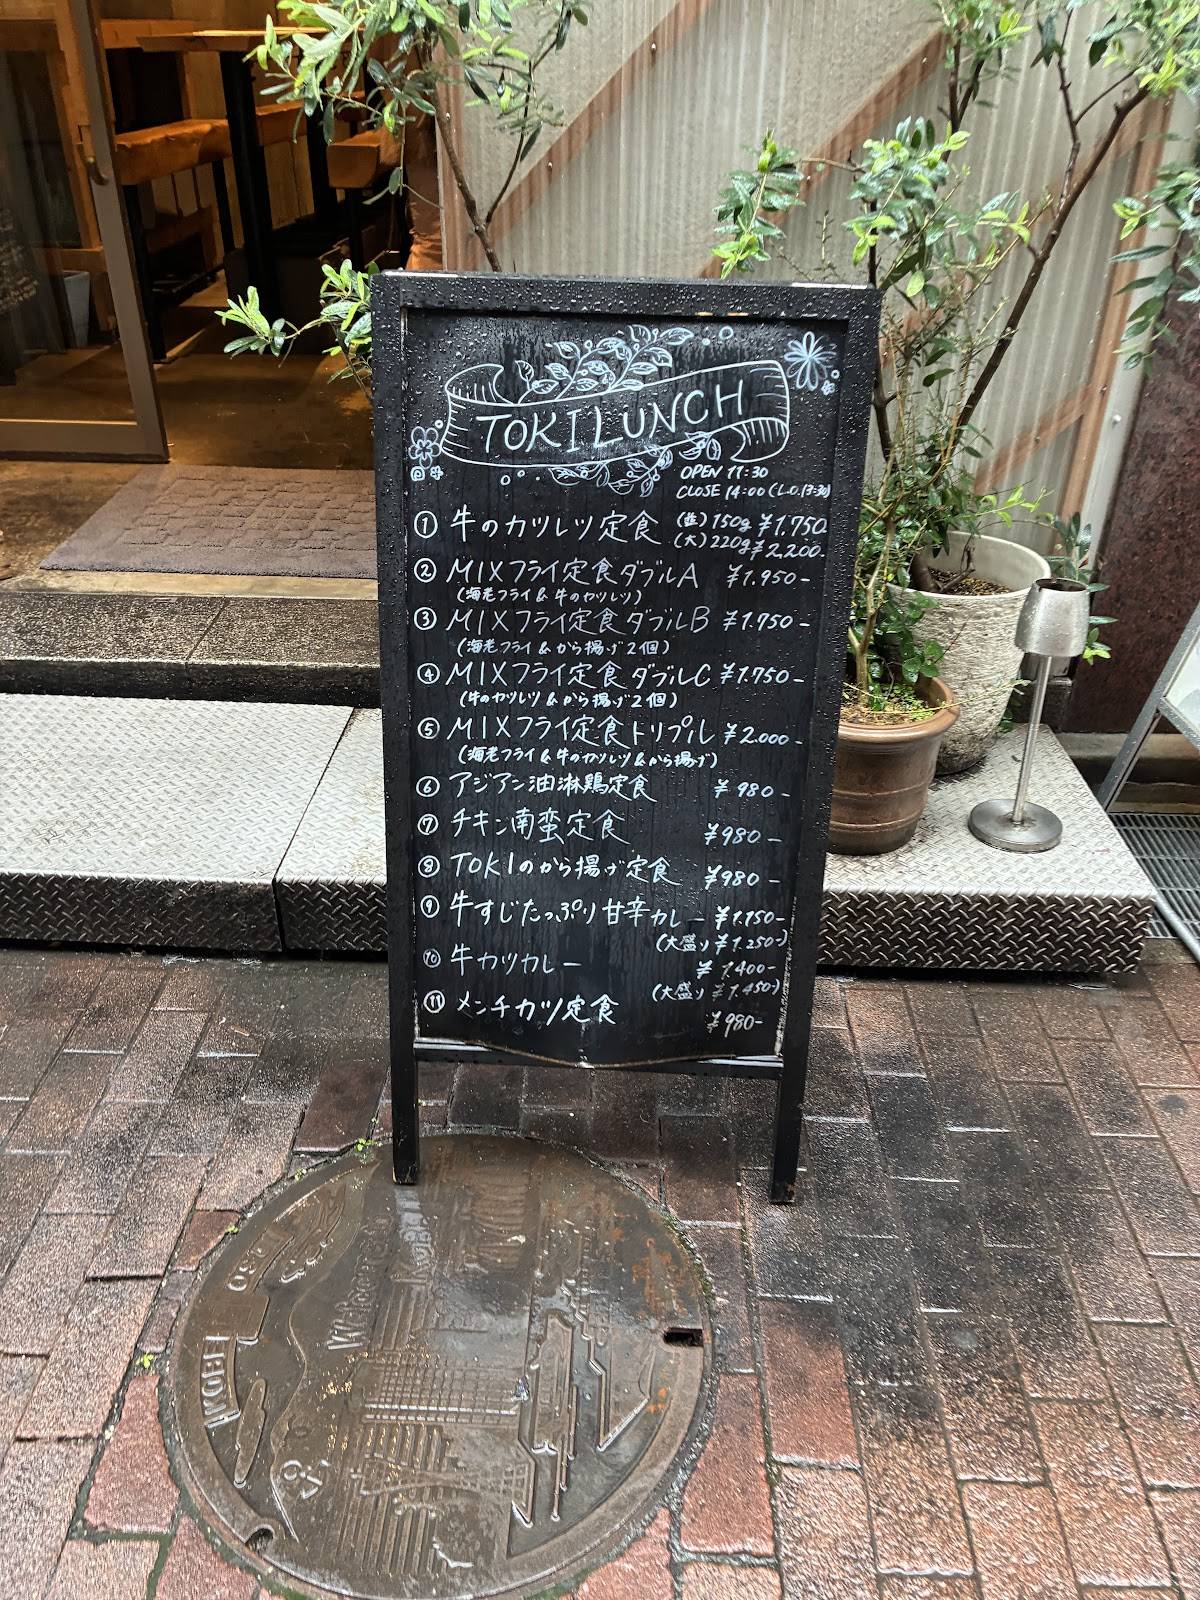 TOKI LUNCH
OPEN 11:30
CLOSE 14:00 (L.O.13:30)
① 牛のカツレツ定食 (並) 150g ¥1,750
(大) 220g ¥2,200-
② MIXフライ定食ダブルA ¥1,950-
(海老フライ & 牛のカツレツ)
③ MIXフライ定食ダブルB ¥1,750-
(海老フライ & から揚げ2個)
④ MIXフライ定食ダブルC ¥1,750-
(牛のカツレツ & から揚げ2個)
⑤ MIXフライ定食トリプル ¥2,000-
(海老フライ & 牛のカツレツ & から揚げ)
⑥ アジアン油淋鶏定食 ¥980-
⑦ チキン南蛮定食 ¥980-
⑧ TOKIのから揚げ定食 ¥980-
⑨ 牛すじたっぷり甘辛カレー ¥1,150-
(大盛り ¥1,250-)
⑩ 牛カツカレー ¥1,400-
(大盛り ¥1,450-)
⑪ メンチカツ定食 ¥980-
KOBE